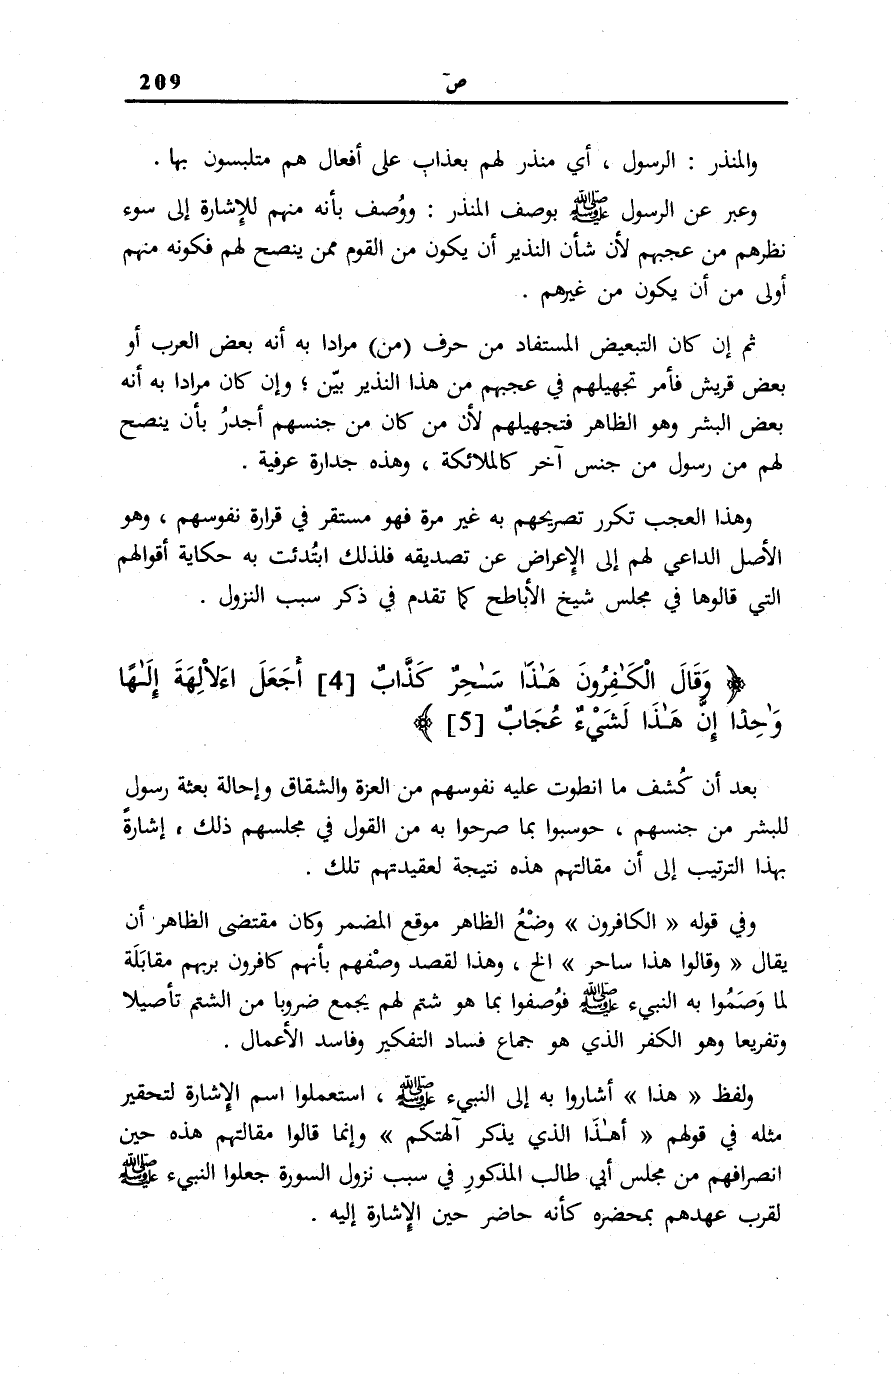 209 صۤ
والمنذر : الرسول ، أي منذر لهم بعذاب على أفعال هم متلبسون بها .
وعبر عن الرسول ﷺ بوصف المنذر : ووُصف بأنه منهم للإشارة إلى سوء
نظرهم من عجبهم لأن شأن النذير أن يكون من القوم ممن ينصح لهم فكونه منهم
أولى من أن يكون من غيرهم .
ثم إن كان التبعيض المستفاد من حرف (من) مرادا به أنه بعض العرب أو
بعض قريش فأمر تجهيلهم في عجبهم من هذا النذير بيّن ؛ وإن كان مرادا به أنه
بعض البشر وهو الظاهر فتجهيلهم لأن من كان من جنسهم أجدرُ بأن ينصح
لهم من رسول من جنس آخر كالملائكة ، وهذه جدارة عرفية .
وهذا العجب تكرر تصريحهم به غير مرة فهو مستقر في قرارة نفوسهم ، وهو
الأصل الداعي لهم إلى الإعراض عن تصديقه فلذلك ابتُدئت به حكاية أقوالهم
التي قالوها في مجلس شيخ الأباطح كما تقدم في ذكر سبب النزول .
﴿ وَقَالَ الْكَـٰفِرُونَ هَـٰذَا سَـٰحِرٌ كَذَّابٌ [4] أَجَعَلَ اءَلاْلِهَةَ إِلَـٰهًا
وَٰحِدًا إِنَّ هَـٰذَا لَشَيْءٌ عُجَابٌ [5] ﴾
بعد أن كُشف ما انطوت عليه نفوسهم من العزة والشقاق وإحالة بعثة رسول
للبشر من جنسهم ، حوسبوا بما صرحوا به من القول في مجلسهم ذلك ، إشارةً
بهذا الترتيب إلى أن مقالتهم هذه نتيجة لعقيدتهم تلك .
وفي قوله « الكافرون » وضْعُ الظاهر موقع المضمر وكان مقتضى الظاهر أن
يقال « وقالوا هذا ساحر » الخ ، وهذا لقصد وصْفهم بأنهم كافرون بربهم مقابَلَة
لما وَصَمُوا به النبيء ﷺ فوُصفوا بما هو شتم لهم يجمع ضروبا من الشتم تأصيلا
وتفريعا وهو الكفر الذي هو جماع فساد التفكير وفاسد الأعمال .
ولفظ « هذا » أشاروا به إلى النبيء ﷺ ، استعملوا اسم الإشارة لتحقير
مثله في قولهم « أهـٰذَا الذي يذكر آلهتكم » وإنما قالوا مقالتهم هذه حين
انصرافهم من مجلس أبي طالب المذكورِ في سبب نزول السورة جعلوا النبيء ﷺ
لقرب عهدهم بمحضره كأنه حاضر حين الإشارة إليه .